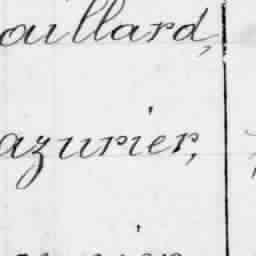 aillard,
azurier,